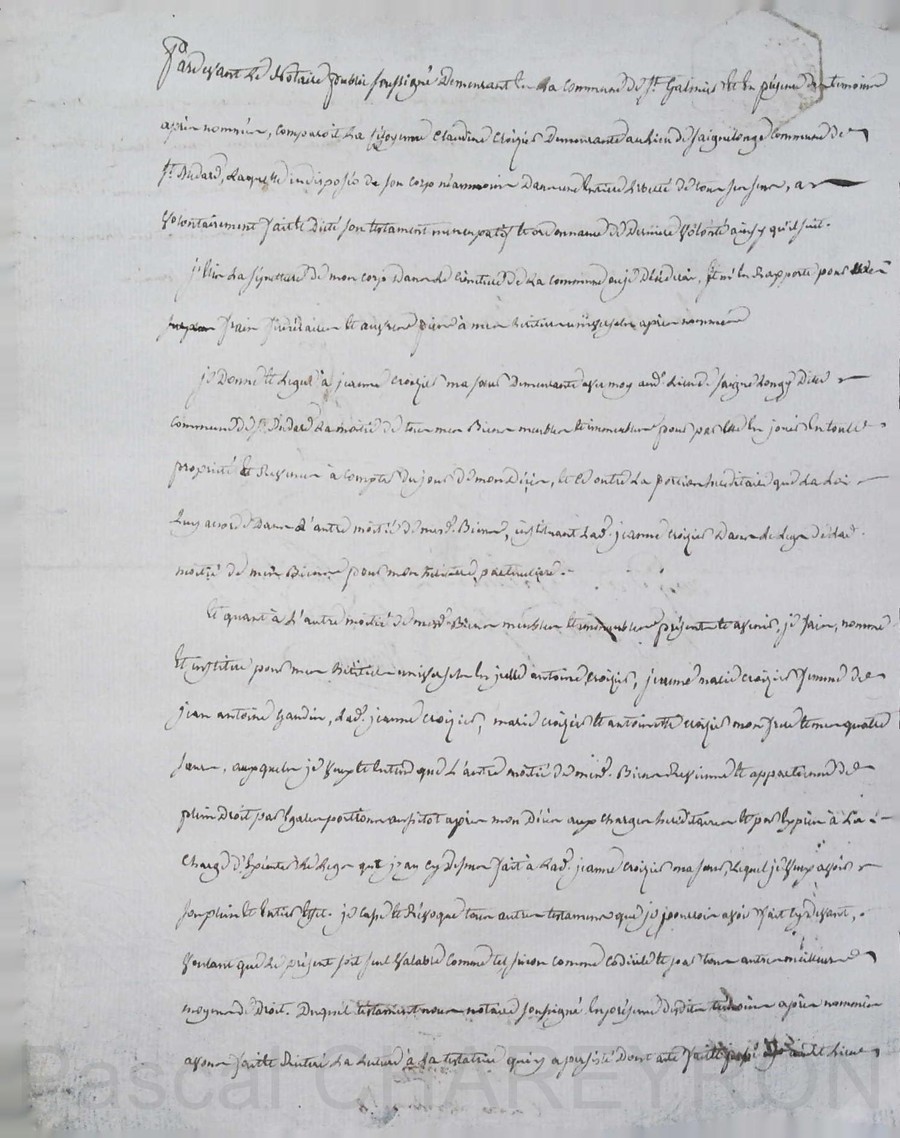 Pardevant le Notaire public soussigné Demeurant en la commune de St. Galmier et en présence des temoins
après nommés, comparoit la citoyenne Claudine Croizier Demeurante au lieu de Saignélonge commune de
St. Médard, Laquelle indisposée de son corps néanmoins Dans une entiere liberté de tous ses sens, a
volontairement fait et Dicté son testament nuncupatif et ordonnance de Derniere volonté ainsy qu'il suit.
j'Elis la sépulture de mon corps Dans le cimetiere de la commune ou je Décéderai, et m'en Rapporte pour
frais funéraires et auvres pies à mes heritiers universels après nommés
je Donne et Legue à jeanne croizier ma sœur Demeurante avec moy aud. Lieu de Saignelonge Dite
commune de St. Médard La moitié de tous mes Biens meubles et immeubles pour par elle en jouir en toute
propriété et Revenus à compter du jour de mon Décès, et ce outre La portion hereditaire que La Loi
Luy accorde Dans L'autre moitié de mesd. Biens, instituant Lad. jeanne croizier Dans le Legs de lad.
moitié de mes Biens pour mon héritiere particuliere.
Et quant à L'autre moitié de mesd. Biens meubles et immeubles présents et avenir, je fais, nomme
Et institue pour mes héritiers universels antoine croizier, jeanne marie croizier femme de
jean antoine Gaudin, Lad. jeanne croizier, marie croizier et antoinette croizier mon frere et mes quatre
sœurs, auxquels je veux et entend que L'autre moitié de mesd. Biens Revienne et appartienne de
plein Droit par Egales portions aussitot après mon Décès aux charges hereditaires et par exprès à La
charge d'Executer le Legs que j'ay cy dessus fait à Lad. jeanne croizier ma sœur, Lequel je veux avoir
son plein et Entier effet. je casse et Révoque tous autres testaments que je pourrois avoir fait cy devant,
voulant que Le présent soit seul valable comme tel sinon comme codicile et par tous autres meilleurs
moyens de Droit. Duquel testament nous notaire soussigné en présence desdits témoins après nommés
avons fait et Réitéré La Lecture à La testatrice qui y a persisté Dont acte fait et
Pascal CHAREYRON